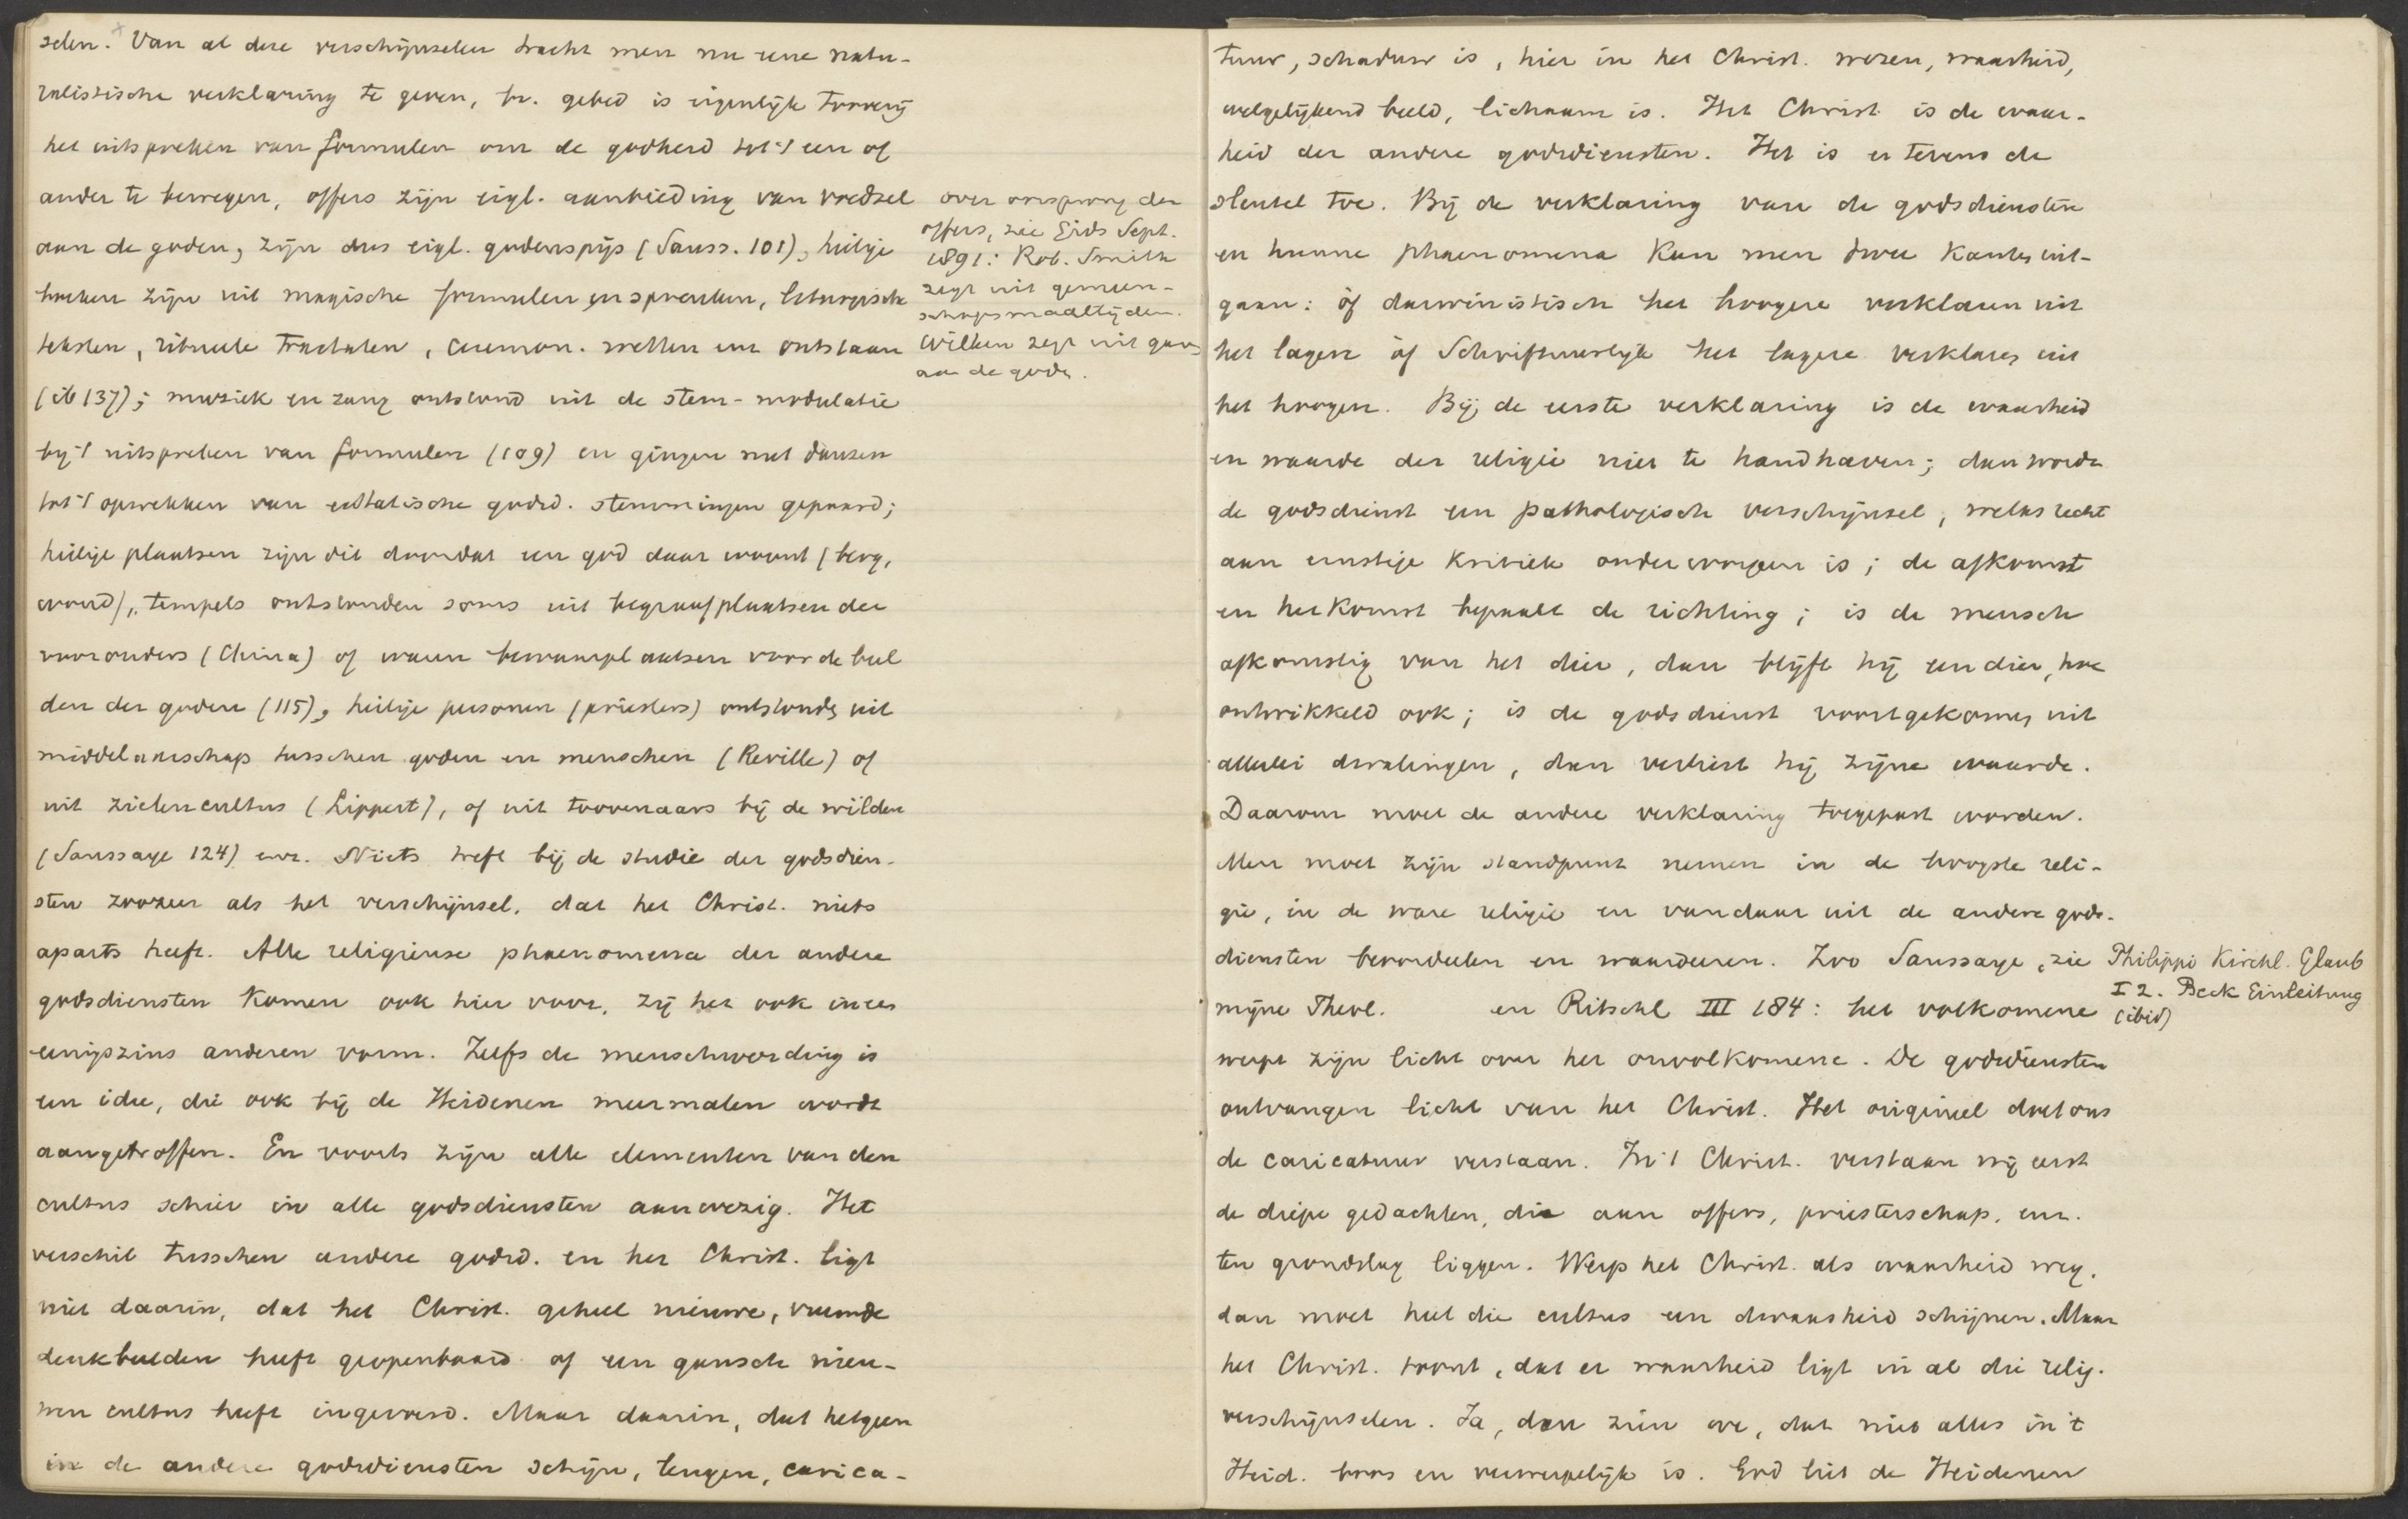 selen. Van al deze verschijnselen tracht men nu eene natu-
ralistische verklaring te geven, bv. gebed is eigenlijk toverij
het uitspreken van formulen om de godheid tot 't een of
ander te bewegen, offers zijn eigl. aanbieding van voedsel
aan de goden, zijn dus eigl. godenspijs (Sauss. 101), heilige
boeken zijn uit magische formulen en spreuken, liturgische
teksten, rituele tractaten, ceremon. wetten enz ontstaan
(ib 137); muziek en zang ontstond uit de stem-modulatie
bij 't uitspreken van formulen (109) en gingen met dansen
tot 't opwekken van extatische godsd. stemmingen gepaard;
heilige plaatsen zijn dit doordat een god daar woont (berg,
woud), tempels ontstonden soms uit begraafplaatsen der
voorouders (China) of waren bewaarplaatsen voor de beel
den der goden (115), heilige personen (priesters) ontstonden uit
middelaarschap tusschen goden en menschen (Reville) of
uit zielencultus (Lippert), of uit toovenaars bij de wilden
(Saussaye 124) enz. Niets treft bij de studie der godsdien-
sten zoozeer als het verschijnsel, dat het Christ. niets
aparts heeft. Alle religieuse phaenomena der andere
godsdiensten komen ook hier voor, zij het ook in een
eenigszins anderen vorm. Zelfs de menschwording is
een idee, die ook bij de Heidenen meermalen wordt
aangetroffen. En voorts zijn alle elementen van den
cultus schier in alle godsdiensten aanwezig. Het
verschil tusschen andere godsd. en het Christ. ligt
niet daarin, dat het Christ. geheel nieuwe, vreemde
denkbeelden heeft geopenbaard of een gansch nieu-
wen cultus heeft ingevoerd. Maar daarin, dat hetgeen
in de andere godsdiensten schijn, leugen, carica-
over oorsprong der
offers, zie Gids Sept.
1891: Rob. Smith
zegt uit gemeen-
schapsmaaltijden.
Wilken zegt uit gaven
aan de goden.
tuur, schaduw is, hier in het Christ. wezen, waarheid,
welgelijkend beeld, lichaam is. Het Christ. is de waar-
heid der andere godsdiensten. Het is er tevens de
sleutel toe. Bij de verklaring van de godsdiensten
en hunne phaenomena kan men twee kanten uit-
gaan: òf darwinistisch het hoogere verklaren uit
het lagere òf Schriftuurlijk het lagere verklaren uit
het hoogere. Bij de eerste verklaring is de waarheid
en waarde der religie niet te handhaven; dan wordt
de godsdienst een pathologisch verschijnsel, welks recht
aan ernstige kritiek onderworpen is; de afkomst
en herkomst bepaalt de richting; is de mensch
afkomstig van het dier, dan blijft hij een dier, hoe
ontwikkeld ook; is de godsdienst voortgekomen uit
allerlei dwalingen, dan verliest hij zijne waarde.
Daarom moet de andere verklaring toegepast worden.
Men moet zijn standpunt nemen in de hoogste reli-
gie, in de ware religie en van daar uit de andere gods-
diensten beoordeelen en waardeeren. Zoo Saussaye, zie
mijne Theol. en Ritschl III 184: het volkomene
werpt zijn licht over het onvolkomene. De godsdiensten
ontvangen licht van het Christ. Het origineel doet ons
de caricatuur verstaan. In 't Christ. verstaan wij eerst
de diepe gedachten, die aan offers, priesterschap, enz.
ten grondslag liggen. Werp het Christ. als waarheid weg,
dan moet heel die cultus een dwaasheid schijnen. Maar
het Christ. toont, dat er waarheid ligt in al die relig.
verschijnselen. Ja, dan zien we, dat niet alles in 't
Heid. boos en verwerpelijk is. God liet de Heidenen
Philippi Kirchl. Glaub
I 2. Beck Einleitung
(ibid)